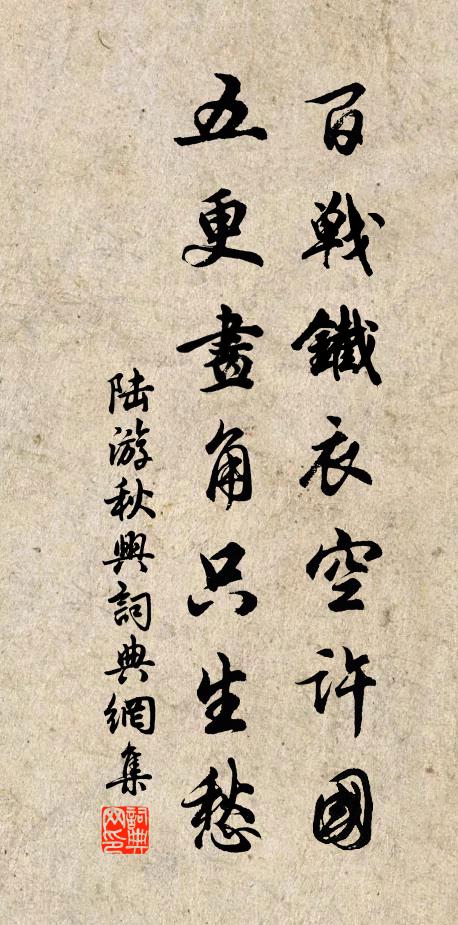 百戰鐵衣空許國
五更畫角只生愁
陆游秋興詞典網集
詞典网印